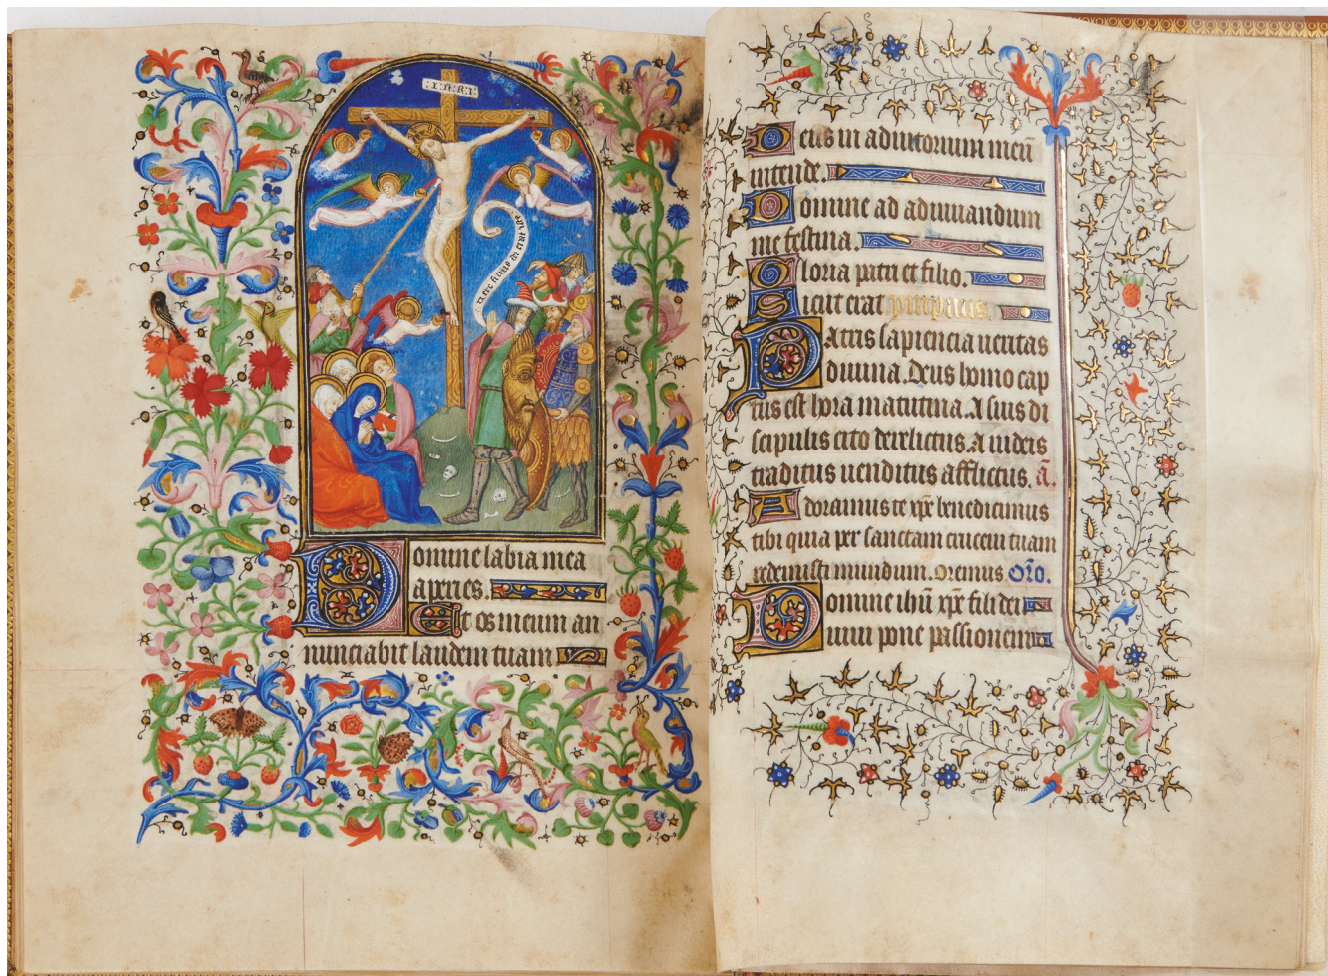 ·I·N·R·I·
vere filius dei erat iste
Domine labia mea
aperies.
Et os meum an
nunciabit laudem tuam
Deus in adiutorium meū
intende.
Domine ad adiuuandum
me festina.
Gloria patri et filio.
Sicut erat
Patris sapiencia ueritas
diuina. Deus homo cap
tus est hora matutina. A suis di
scipulis cito derelictus. a iudeis
traditus uenditus afflictus. ā.
Adoramus te xp̄e benedicimus
tibi quia per sanctam crucem tuam
redemisti mundum. oremus Or̄o.
Domine ihū xp̄e fili dei
uiui pone passionem